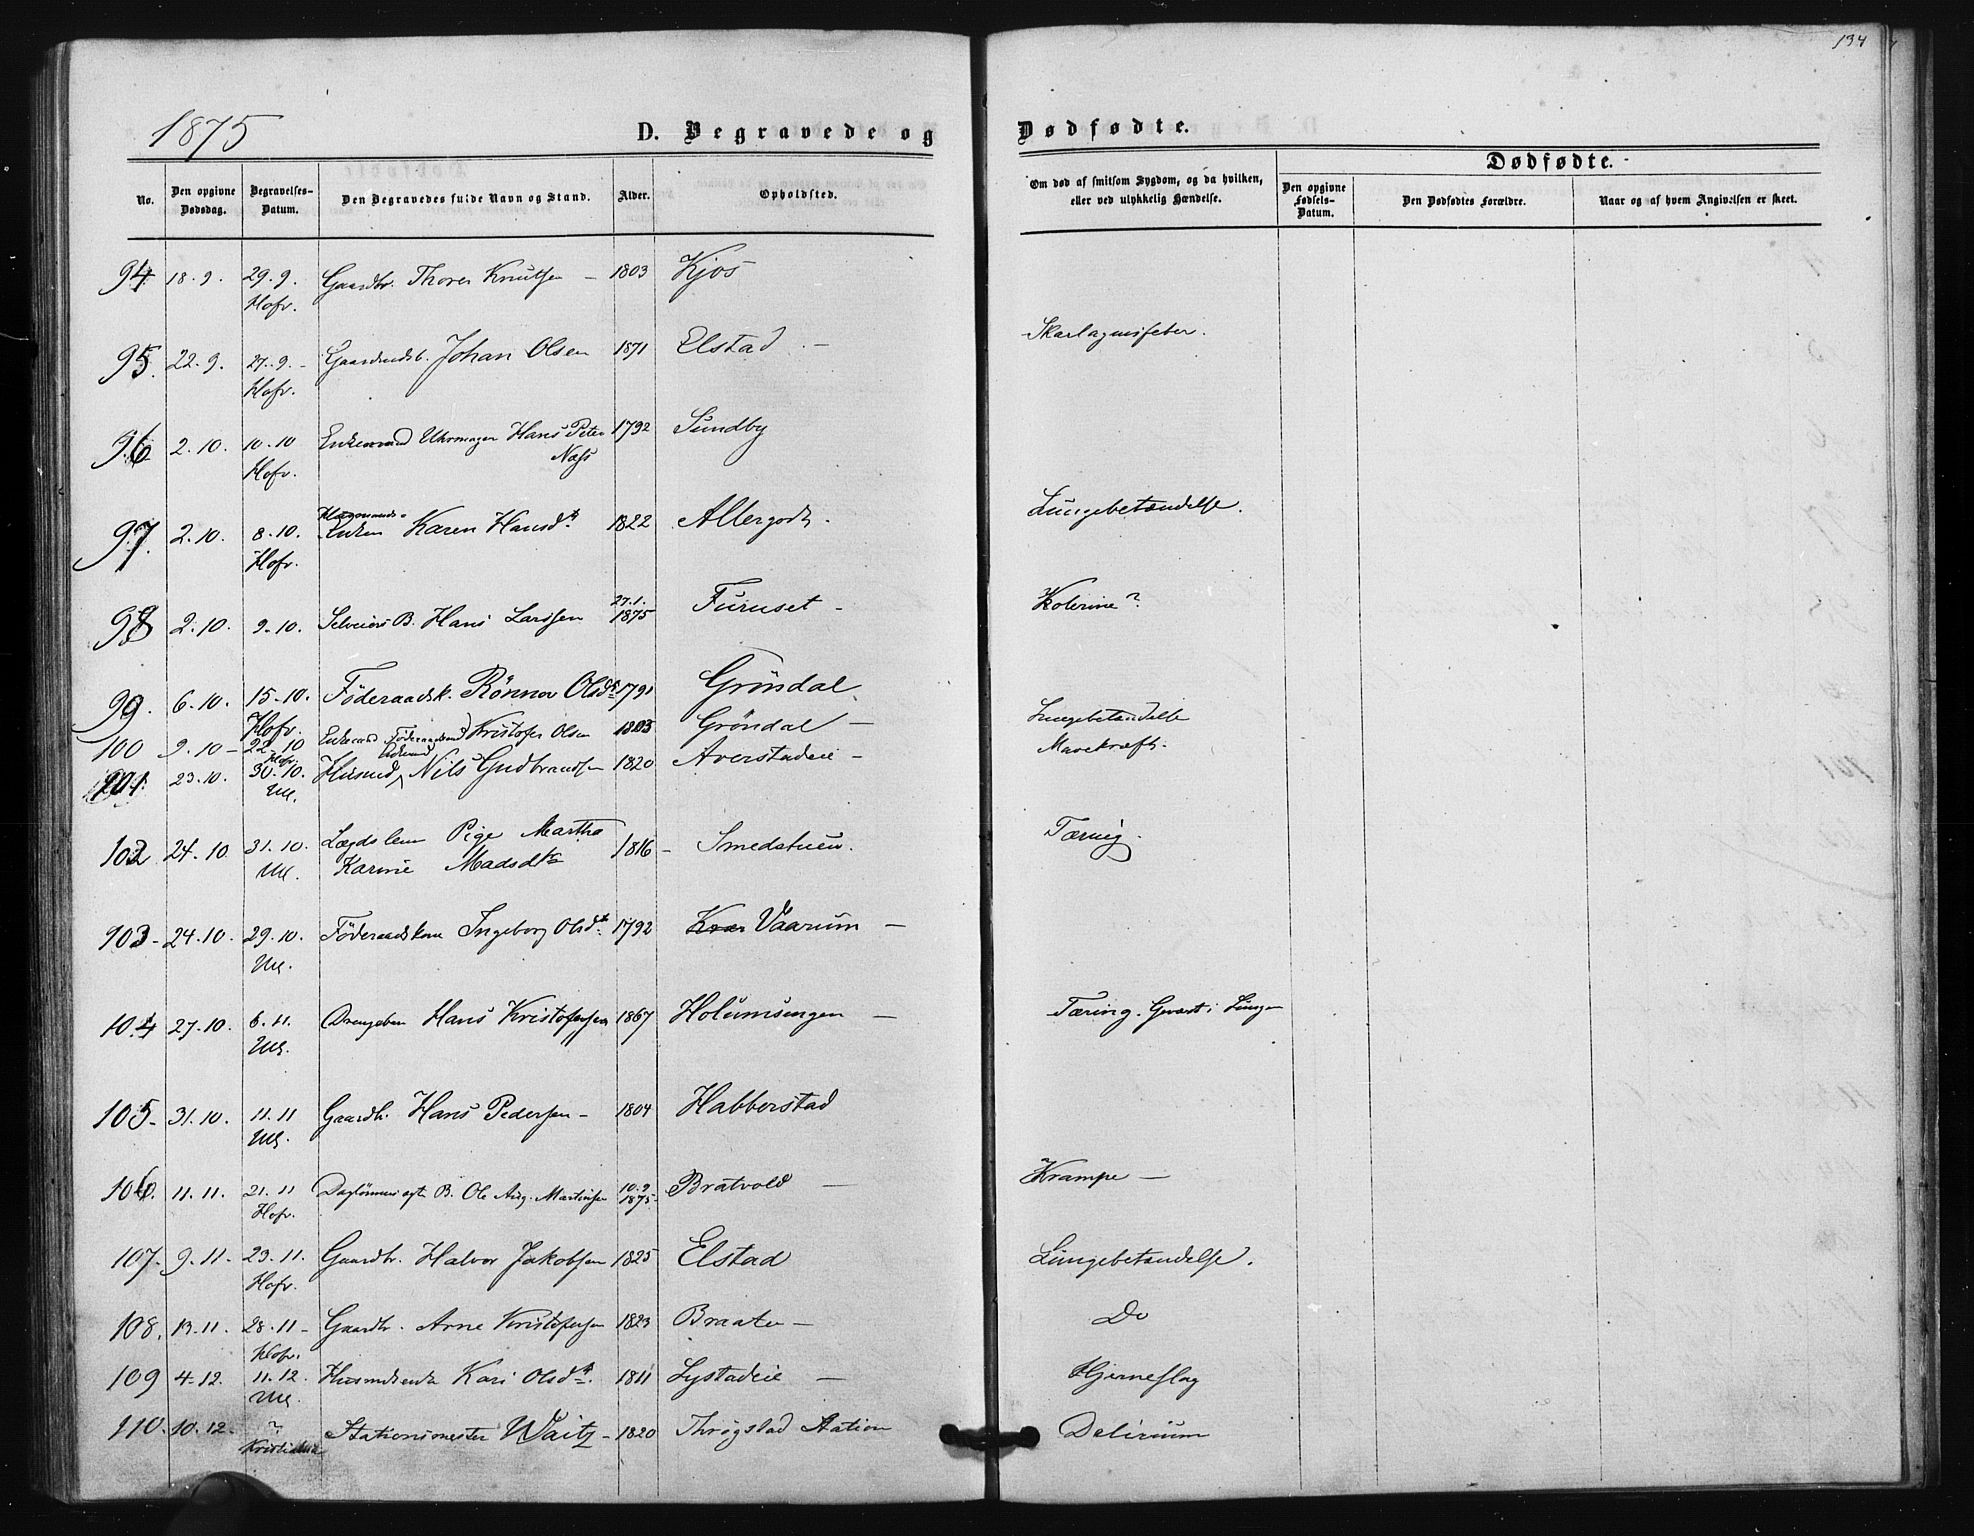 134
1875
D. Begravede og Dødfødte.
Dødfødte.
No.
Den opgivne Dødsdag.
Begravelses-Datum.
Den Begravedes fulde Navn og Stand.
Alder.
Opholdsted.
Om død af smitsom Sygdom, og da hvilken, eller ved ulykkelig Hændelse.
Den opgivne Fødsels-Datum.
Den Dødfødtes Forældre.
Naar og af hvem Angivelsen er skeet.
94 18.9. 29.9. Gaardbr. Thorer Knutsen – 1803 Kjos
Hofv.
95. 22.9. 27.9. – Johan Olsen 1871 Elstad – Skarlagensfeber.
Hofv.
96 2.10. 10.10 Enkemand Uhrmager Hans Peter 1792 Sundby
Hofv. Næss
97. 2.10. 8.10. Enken Karen Hansdt. 1822 Allergodt. Lungebetændelse.
Hofv.
98 2.10. 9.10. Selveiers B. Hans Larssen 27.1. 1875 Furuset – Kolerine?
99. 6.10. 15.10. Föderaadsk. Rönnov Olsdt. 1791 Gröndal
Hofv.
100 9.10 – 22.10 Enkemand Föderaadsmand Kristofer Olsen 1803 Gröndal – Lungebetændelse
Hofv.
101. 23.10. 30.10. Husmd Enkemd Nils Gudbrandsen 1820 Averstadeie – Mavekræft.
Ull.
102 24.10 31.10. Lægdslem Pige Martha 1816 – Smedstuen. Tæring.
Ull. Karine Madsdtr
103 – 24.10. 29.10. Föderaadskone Ingeborg Olsdt. 1792 Vaarum –
Ull.
104 27.10. 6.11. Drengeban Hans Kristofersen 1867 Holumsengen – Tæring. i Lungen
Ull.
105 – 31.10. 11.11 Gaardbr. Hans Pedersen – 1804 Habberstad
Ull.
106. 11.11. 21.11 Daglönners ægte B. Ole Aug. Martinsen 10.9 1875 – Bratvold – Krampe –
Hofv.
107. 9.11. 23.11. Gaardbr. Halvor Jakobsen 1825 Elstad Lungebetændelse.
Hofv.
108. 13.11. 28.11 – Gaardbr. Arne Kristofersen 1823 Braaten – Do
Hofv.
109 4.12. 11.12. Husmdsenke Kari Olsdt. 1811 Lystadeie – Hjerneslag
Ull.
110. 10.12. ? Stationsmester Waitz – 1820 Thrögstad Station Delirium
Kristiania